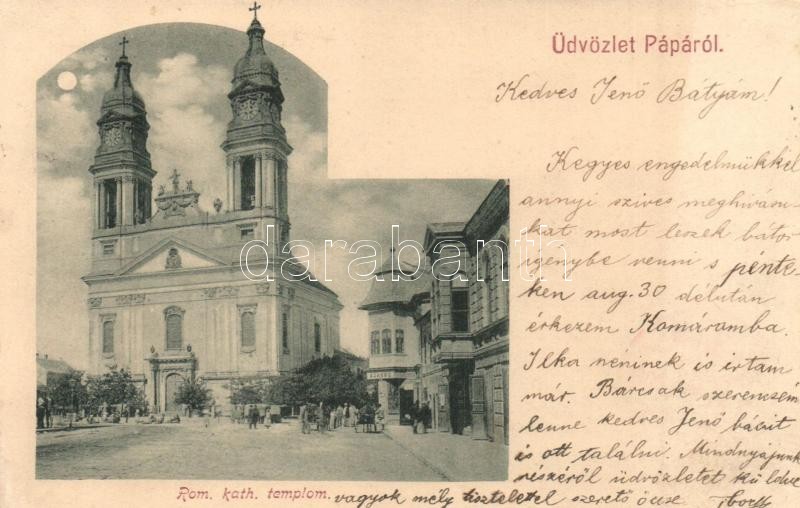 Üdvözlet Pápáról.
Kedves Jenő Bátyám!
Kegyes engedelmükkel
annyi szives meghivásu-
kat most leszek bátor
igénybe venni s pénte-
ken aug. 30 délután
érkezem Komáromba.
Ilka néninek is irtam
már. Bárcsak szerencsém
lenne kedves Jenő bácsit
is ott találni. Mindnyájunk
részéről üdvözletet küldve
vagyok mély tisztelettel szerető öcsse
Rom. kath. templom.
darabanth